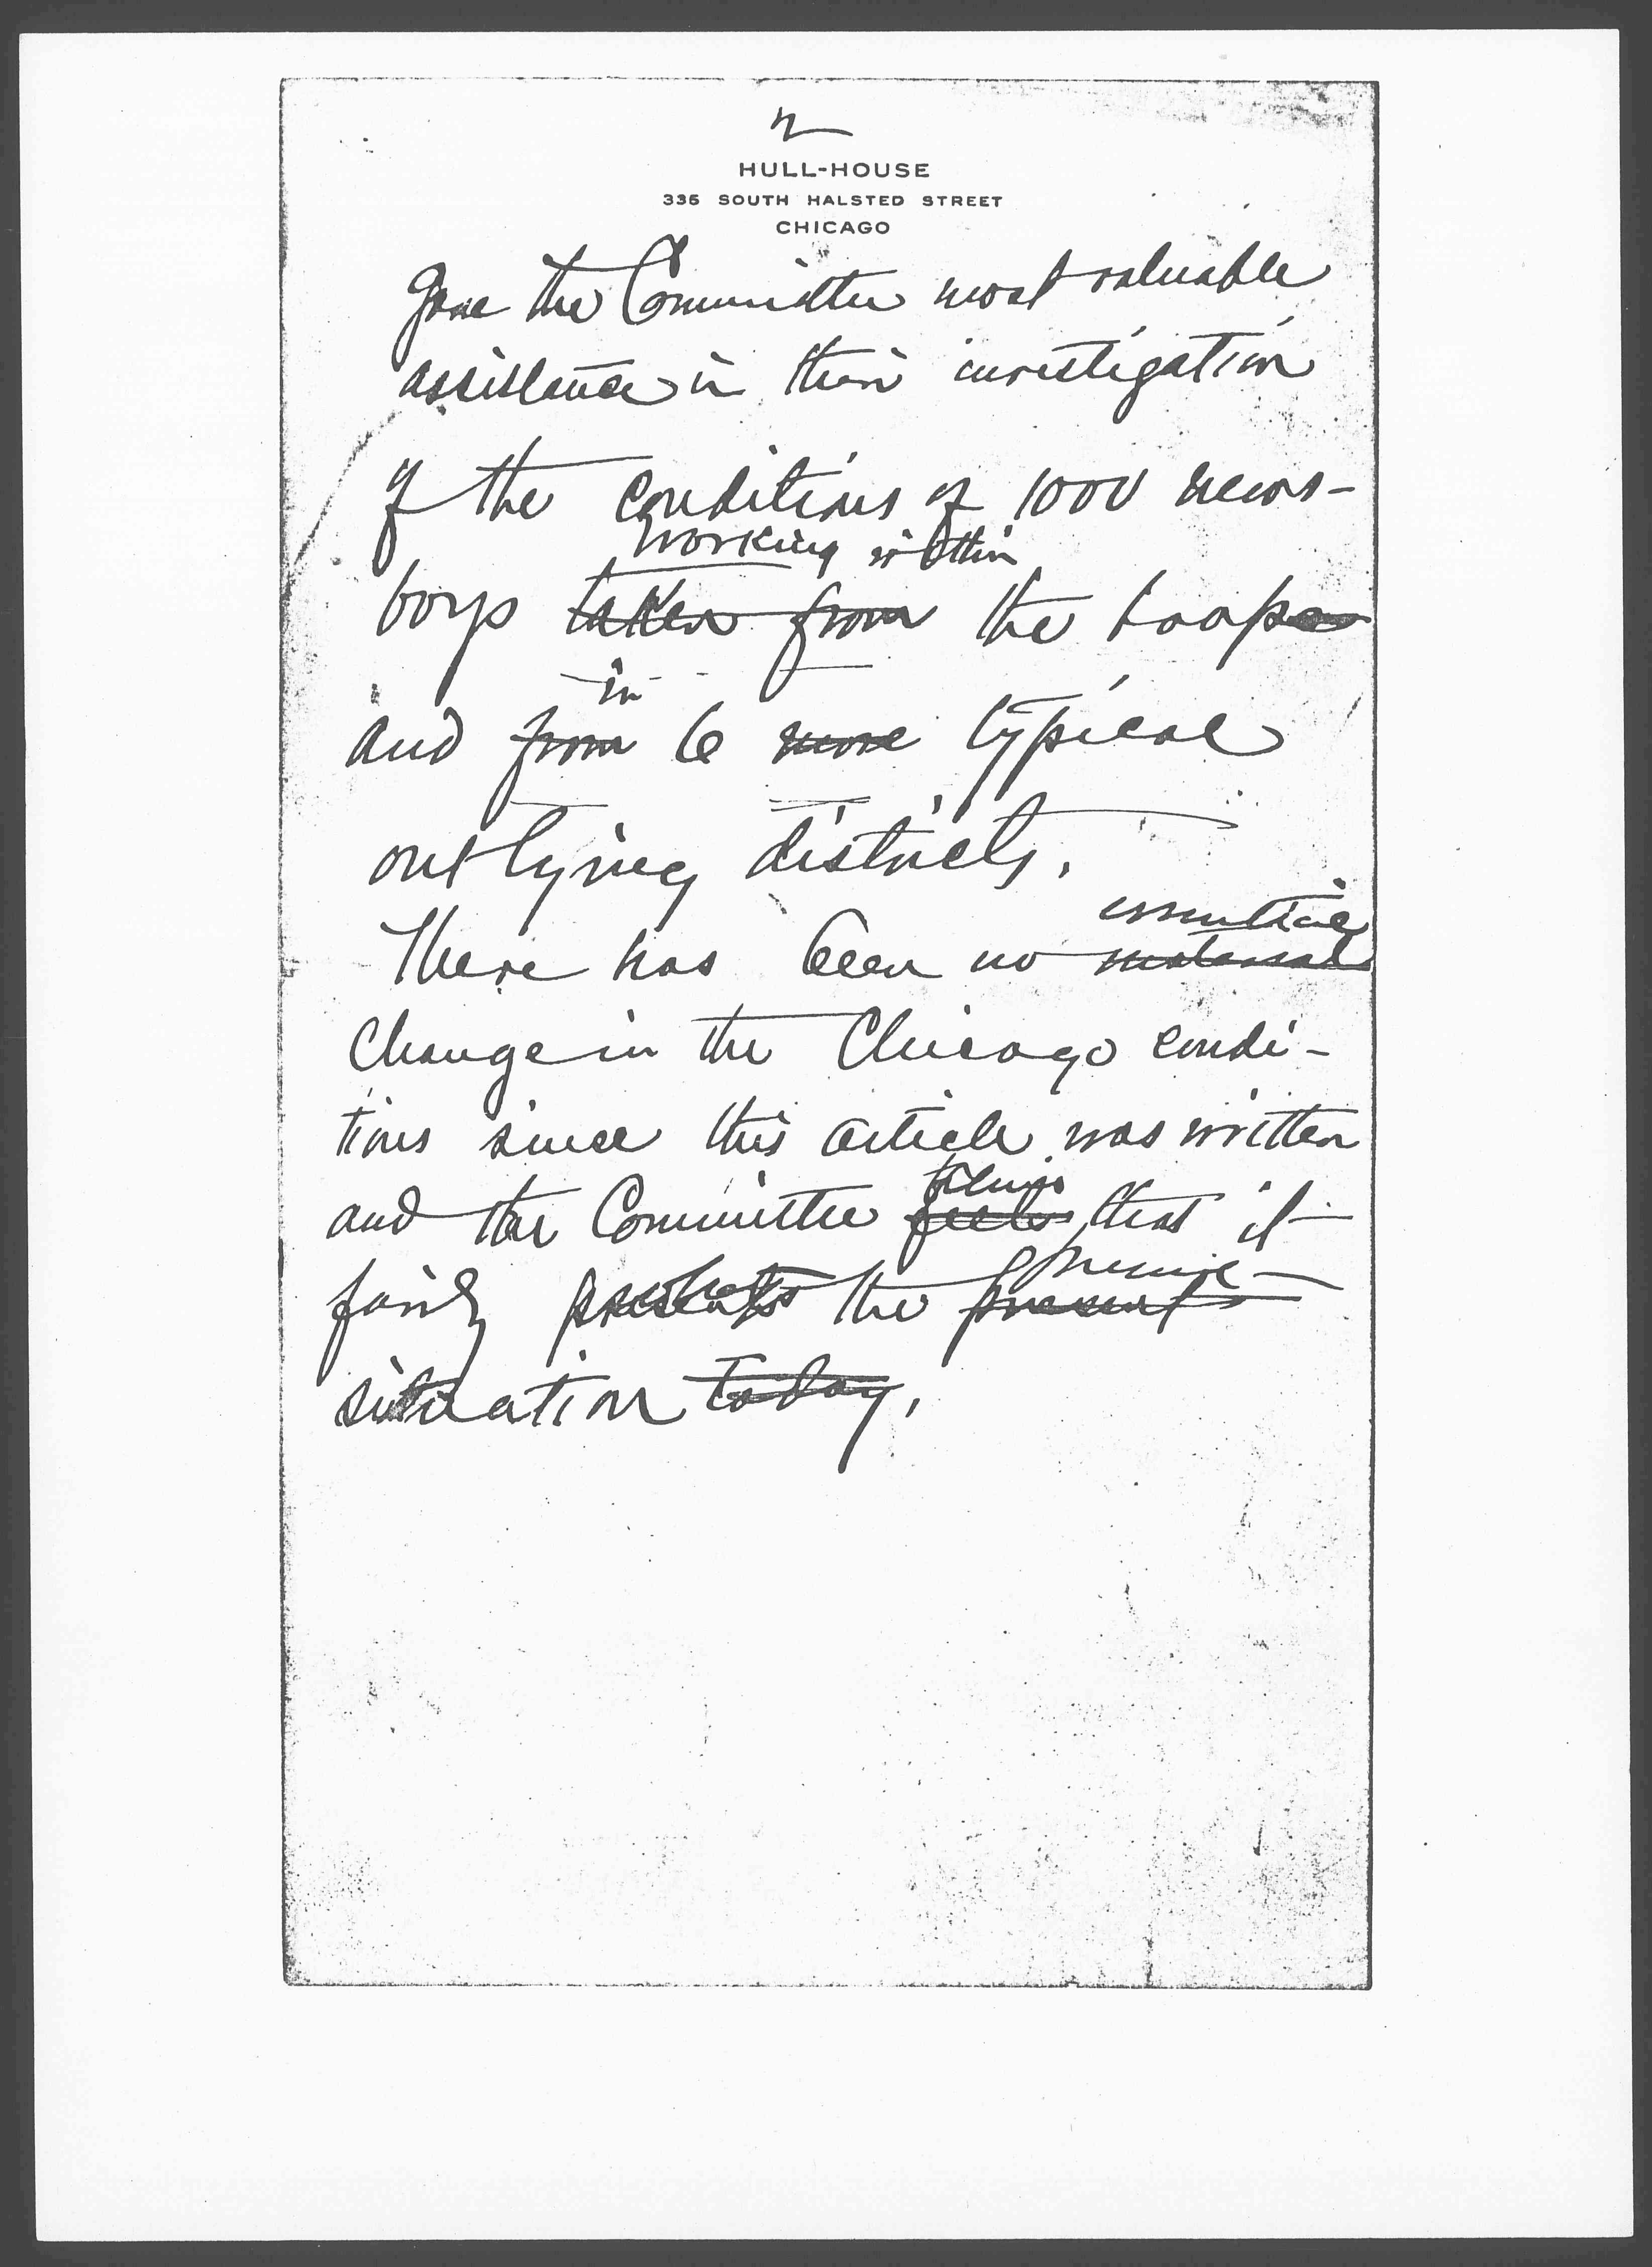 2
HULL-HOUSE
335 SOUTH HALSTED STREET
CHICAGO
gave the Committee most valuable
assistance in their investigation
of the conditions of 1000 news-
working within
boys taken from the loop
in
and from 6 more typical
outlying districts.
essential
There has been no material
change in the Chicago condi-
tions since this article was written
believes
and the Committee feels that it
fairly presents the present
situation today.